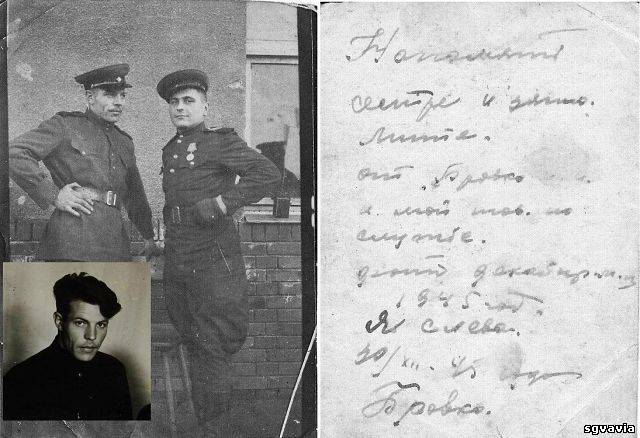 На память
сестре и зятю.
Мите.
от Бровко
и мой тов. по
службе.
декабрь м-ц
1945 год.
Я слева.
30/XII-45 года
Бровко.
sgvavia